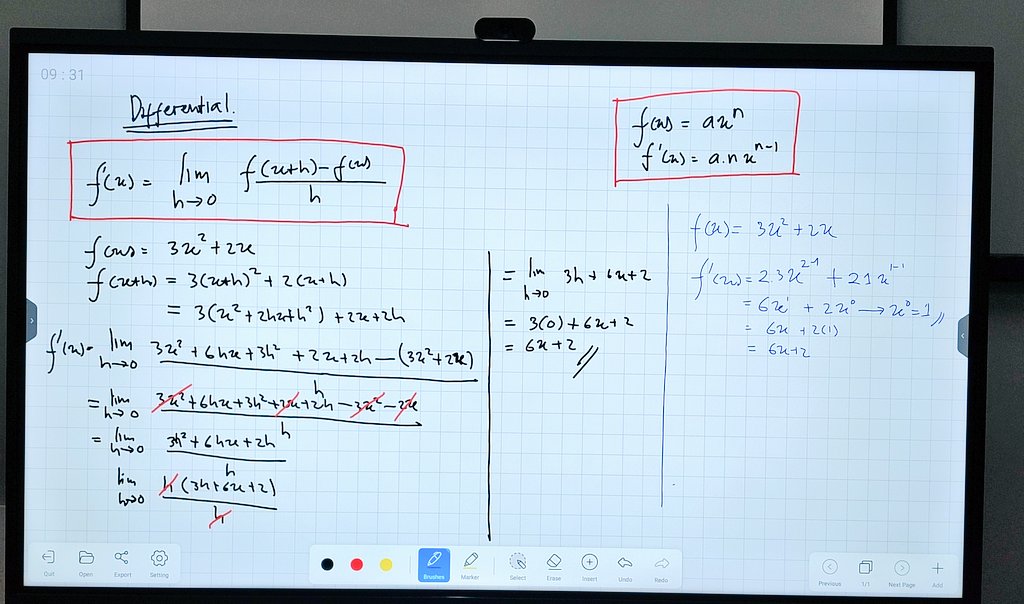 09:31
Differential.
f'(x) = lim h→0 f(x+h)-f(x) / h
f(x) = 3x² + 2x
f(x+h) = 3(x+h)² + 2(x+h)
= 3(x²+2hx+h²) + 2x+2h
f'(x) = lim h→0 3x² + 6hx + 3h² + 2x + 2h - (3x²+2x) / h
= lim h→0 3x² + 6hx + 3h² + 2x + 2h - 3x² - 2x / h
= lim h→0 3h² + 6hx + 2h / h
lim h→0 h(3h+6x+2) / h
= lim h→0 3h + 6x + 2
= 3(0) + 6x + 2
= 6x + 2 //
f(x) = axⁿ
f'(x) = a.n xⁿ⁻¹
f(x) = 3x² + 2x
f'(x) = 2.3x²⁻¹ + 2.1x¹⁻¹
= 6x¹ + 2x⁰ → x⁰ = 1 //
= 6x + 2(1)
= 6x + 2
Quit Open Export Setting
Brushes Marker Select Erase Insert Undo Redo
Previous 1/1 Next Page Add